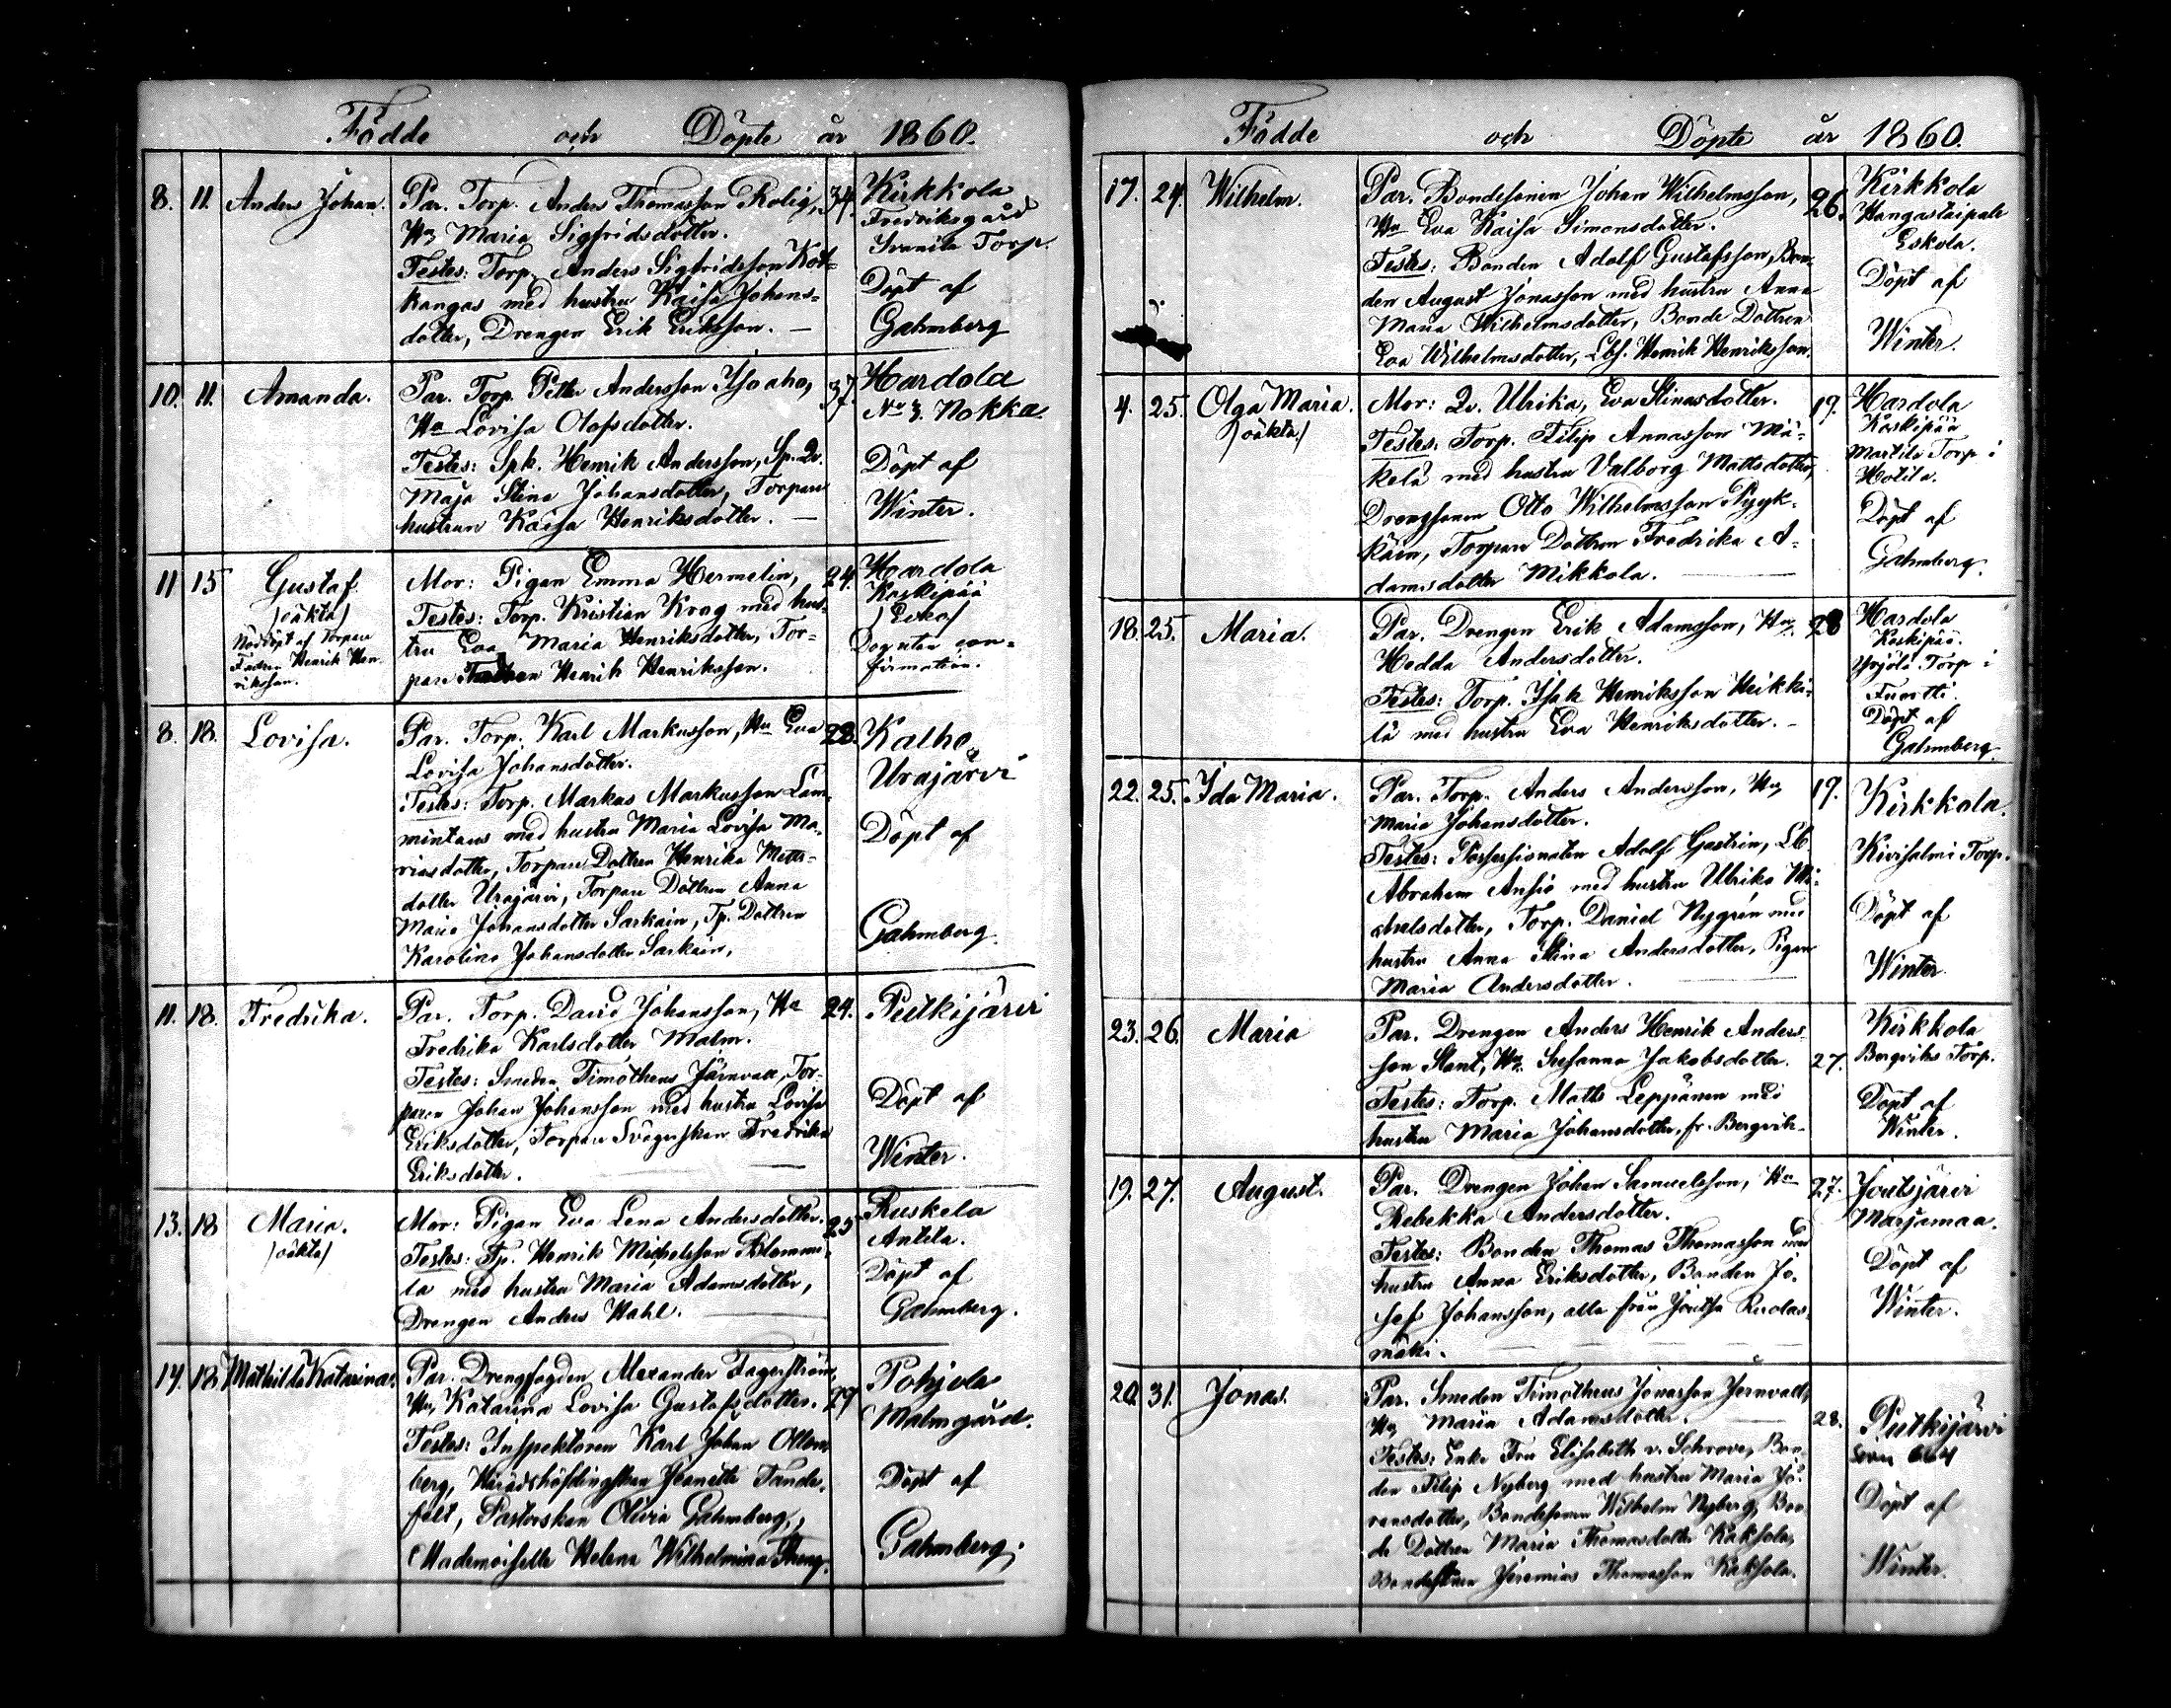 Födde och Döpte år 1860.
8. 11. Anders Johan. Par. Torp. Anders Thomasson Rolig, 34. Kirkkola
Hu Maria Sigfridsdotter. Fredriksgård
Testes: Torp. Anders Sigfridsson Kot- Torp.
kangas med hustru Kaisa Johans- Döpt af
dotter, Drengen Erik Eriksson. — Gahmberg
10. 11. Amanda. Par. Torp. Petter Andersson Isoaho, 37. Hardola
Hu Lovisa Olofsdotter. No 3. Nokka
Testes: Spk. Henrik Andersson, Sp. Qv. Döpt af
Maja Stina Johansdotter, Torpare Winter.
hustrun Kaisa Henriksdotter. —
11 15 Gustaf Mor: Pigan Emma Hermelin, 24. Hardola
/oäkta/ Testes: Torp. Kristian Krog med hus- Koskipää
Nöddöpt af Torpare tru Eva Maria Henriksdotter, Tor-
Henrik Hen- pare Henrik Henriksson. con-
riksson. firmation.
8. 18. Lovisa. Par. Torp. Karl Markusson, Hu Eva 22. Kalho
Lovisa Johansdotter. Urajärvi
Testes: Torp. Markus Markusson Lam-
mintaus med hustru Maria Lovisa Ma- Döpt af
riasdotter, Torpare Dottren Henrika Matts-
dotter Urajärvi, Torpare Dottren Anna
Maria Johansdotter Sarkain, Tp. Dottren Gahmberg.
Karolina Johansdotter Sarkain,
11. 18. Fredrika. Par. Torp. David Johansson, Hu 24. Putkijärvi
Fredrika Karlsdotter Malm.
Testes: Smeden Timotheus Järnvall, Tor-
paren Johan Johansson med hustru Lovisa Döpt af
Eriksdotter, Torpare Svägerskan Fredrika Winter.
Eriksdotter.
13. 18 Maria. Mor: Pigan Eva Lena Andersdotter. 25 Ruskela
/oäkta/ Testes: Tp. Henrik Michelsson Blommi- Antila.
la med hustru Maria Adamsdotter, Döpt af
Drengen Anders Wahl. Gahmberg.
14. 18 Mathilda Katarina. Par. Drengfogden Alexander Fagerström, Pohjola
Hu Katarina Lovisa Gustafsdotter. 29 Malmgård.
Testes: Inspektoren Karl Johan Ollon-
berg, Häradshöfdingskan Jeanette Tande- Döpt af
felt, Pastorskan Olivia Gahmberg,
Mademoiselle Helena Wilhelmina Gahmberg.
Födde och Döpte år 1860.
17. 24. Wilhelm. Par. Bondesonen Johan Wilhelmsson, 26. Kirkkola
Hu Eva Kaisa Simonsdotter. Hangastaipale
Testes: Bonden Adolf Gustafsson, Bon- Eskola.
den August Jonasson med hustru Anna Döpt af
Maria Wilhelmsdotter, Bonde Dottren
Eva Wilhelmsdotter, Lbf. Henrik Henriksson. Winter.
4. 25. Olga Maria. Mor: Qv. Ulrika, Eva Stinasdotter. 19. Hardola
/oäkta/ Testes: Torp. Filip Annasson Mä- Koskipää
kelä med hustru Valborg Mattsdotter, Martila Torp i
Drengsonen Otto Wilhelmsson Pyyk- Hotila.
käin, Torpare Dottren Fredrika A- Döpt af
damsdotter Mikkola. Gahmberg.
18. 25. Maria. Par. Drengen Erik Adamsson, Hu 28 Hardola
Hedda Andersdotter. Koskipää.
Testes: Torp. Isak Henriksson Heikki- Yrjölä Torp i
lä med hustru Eva Henriksdotter. — Döpt af
Gahmberg.
22. 25. Ida Maria. Par. Torp. Anders Andersson, Hu 19. Kirkkola.
Maria Johansdotter.
Testes: Possessionaten Adolf Gastrin, Lb. Kivisalmi Torp.
Abraham Ansio med hustru Ulrika Mi-
chelsdotter, Torp. Daniel Nygrén med Döpt af
hustru Anna Stina Andersdotter, Pigan
Maria Andersdotter. Winter
23. 26. Maria Par. Drengen Anders Henrik Anders- Kirkkola
son Stant, Hu Susanna Jakobsdotter. 27. Bergviks Torp.
Testes: Torp. Matts Leppänen med Döpt af
hustru Maria Johansdotter, fr. Bergvik. Winter.
19. 27. August. Par. Drengen Johan Samuelsson, Hu 27. Joutsjärvi
Rebekka Andersdotter. Marjamaa.
Testes: Bonden Thomas Thomasson med
hustru Anna Eriksdotter, Bonden Jo- Döpt af
sef Johansson, alla från Joutsa Ruolas- Winter.
mäki.
20. 31. Jonas. Par. Smeden Timotheus Jonasson Jernvall,
Hu Maria Adamsdotter. 28. Putkijärvi
Testes: Enke Fru Elisabeth v. Schrove, Bon-
den Filip Nyberg med hustru Maria Jö-
ransdotter, Bondesonen Wilhelm Nyberg, Bon- Döpt af
de Dottren Maria Thomasdotter Kaksola,
Bondesonen Jeremias Thomasson Kaksola. Winter.